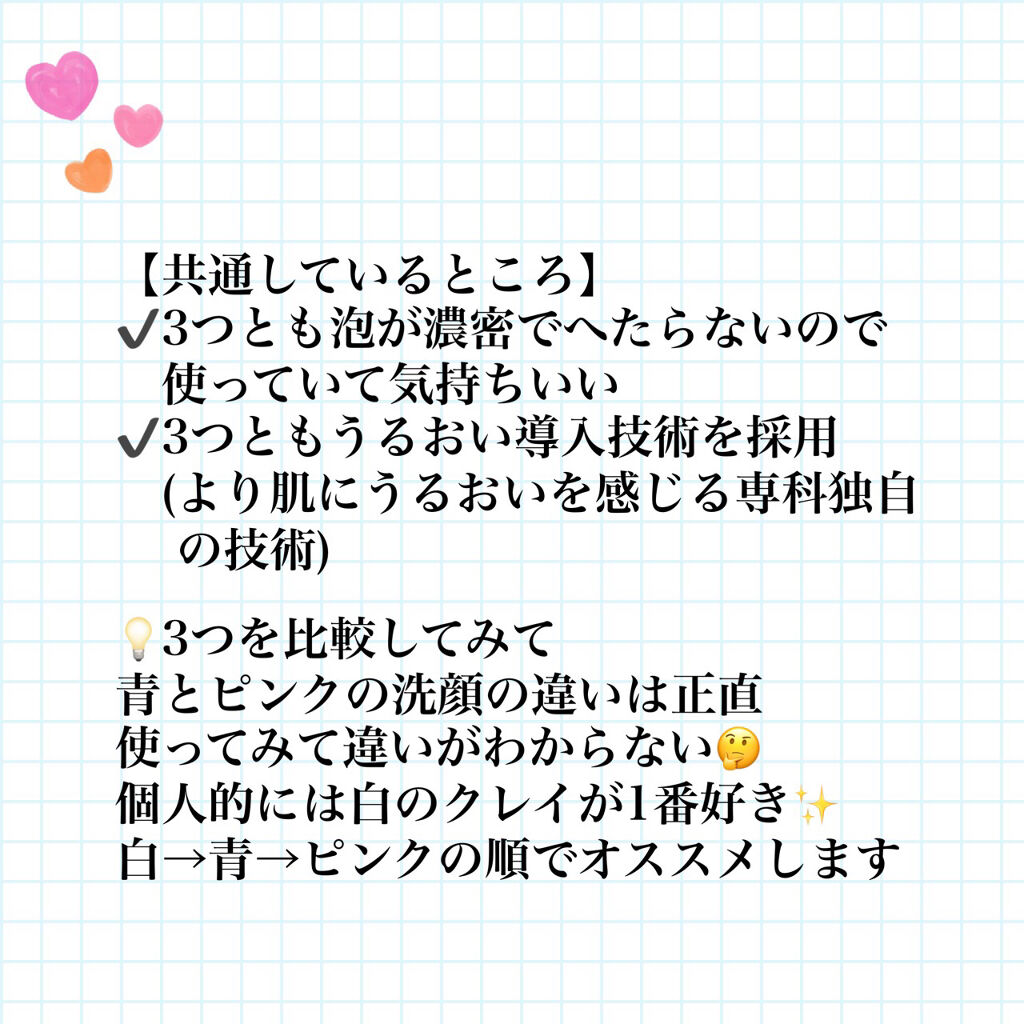 【共通しているところ】
✔3つとも泡が濃密でへたらないので
使っていて気持ちいい
✔3つともうるおい導入技術を採用
(より肌にうるおいを感じる専科独自
の技術)
💡3つを比較してみて
青とピンクの洗顔の違いは正直
使ってみて違いがわからない🤔
個人的には白のクレイが1番好き✨
白→青→ピンクの順でオススメします